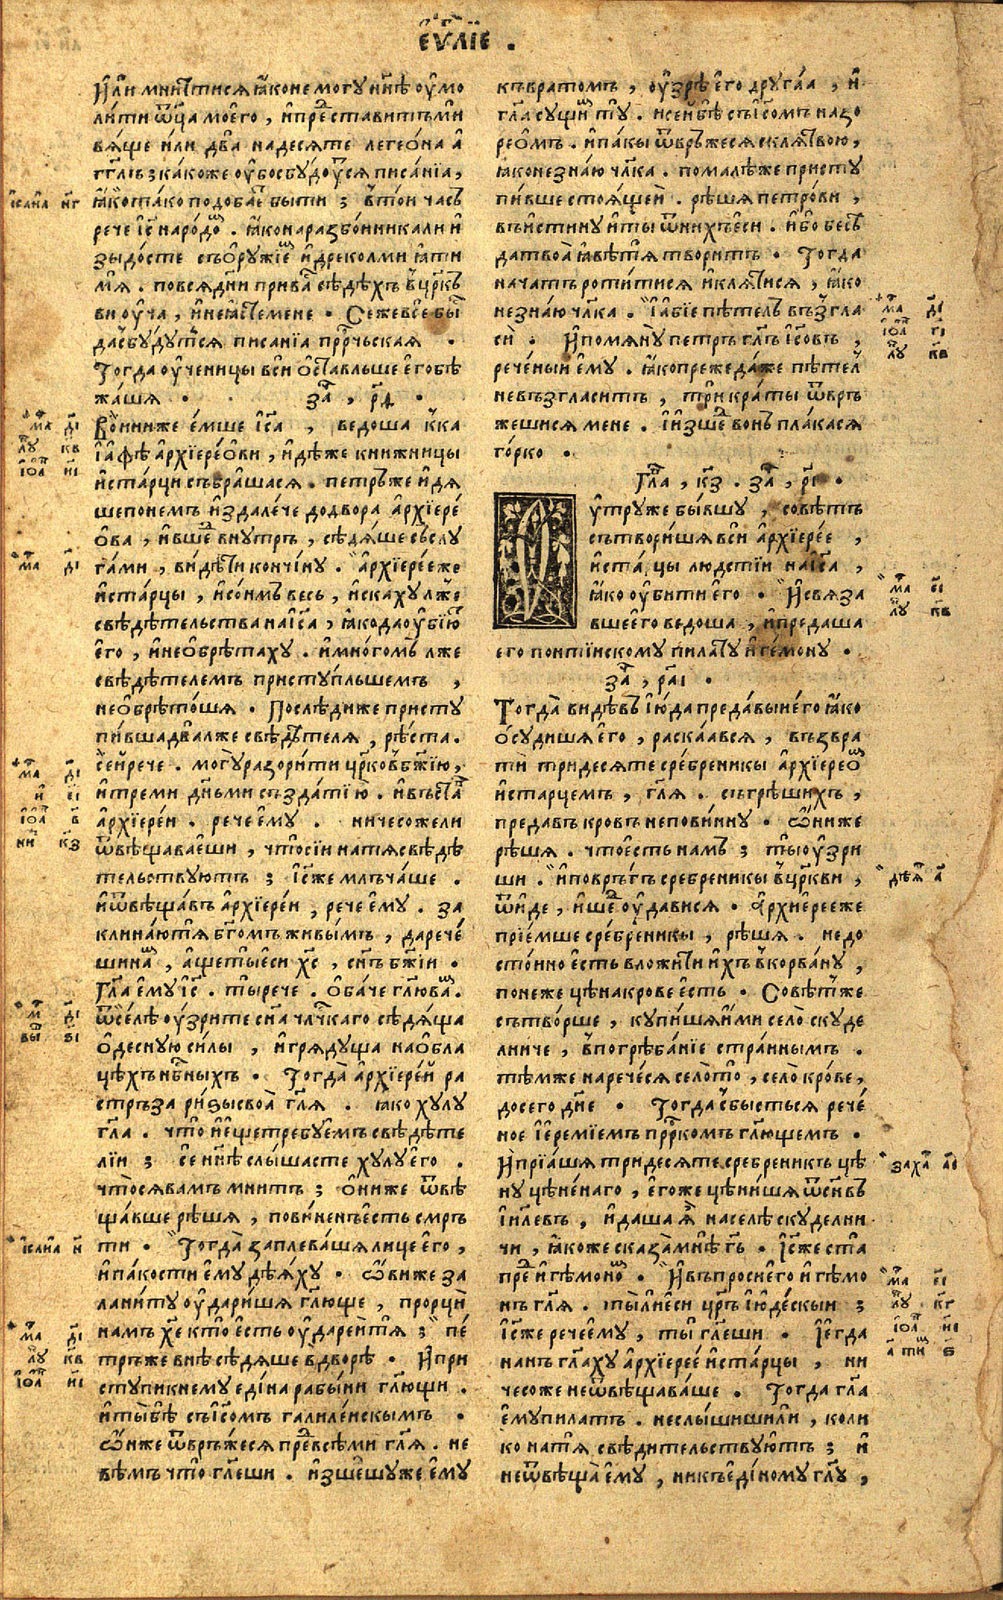 еѵⷢ҇лїе .
И҆лѝ мни́ши ти сѧ ꙗ҆ко не могꙋ̀ нн҃ѣ ᲂу҆мо
ли́ти ѿц҃а моего̀ , и҆ представитъ ми
вѧ́ще и҆ли двана́десѧте легео́на а҆
гг҃лъ ; ка́ко же ᲂу҆бо сбꙋ́дꙋтсѧ писа́нїа ,
ꙗ҆́ко та́ко подоба́етъ бы́ти ; в то́и часъ
рече і҆с҃ наро́дѡⷨ . ꙗ҆́ко на разбо́иника ли и҆
зыдо́сте съ ѻ҆рꙋ́жїеⷨ и҆ дреколми ꙗ҆ти
мѧ̀ . по всѧ́ дн҃и при ва́съ сѣдѣ́хъ в цр҃кв
ви ᲂу҆ча̀ , и҆ не ꙗ҆́сте мене . Се же всѐ бы́сть
да сбꙋ́дꙋтсѧ писа́нїа прⷪ҇рчьская .
Тогда ᲂу҆ченицы вси ѻ҆ста́вльше е҆го̀ бѣ
жа́шѧ . за҄ , рд҃ .
Во́ини же е҆́мше і҆с҃а , ведоша к ка
їа҆фѣ а҆рхїере́ѻви , и҆дѣ́же кни́жницы
и҆ ста́рци събра́шасѧ . петръ же и҆дѧ́
ше по не́мъ и҆здале́че до двора а҆рхїере́
ѻва , и҆ вшеⷣ внꙋ́трь , сѣдѧ́ше съ слꙋ
га́ми , ви́дѣти кончи́нꙋ . а҆рхїере́е же
и҆ ста́рцы , и҆ со́нмъ весь , и҆ска́хꙋ лже
свѣдѣ́тельства на і҆с҃а , ꙗ҆́ко да ᲂу҆бїю́тъ
е҆го̀ , и҆ не ѻ҆брѣта́хꙋ . и҆ мно́гомъ лже
свѣдѣ́телемъ пристꙋ́пльшемъ ,
не ѻ҆брѣто́шѧ . Послѣди́ же пристꙋ
пи́вша два лже свѣдѣ́телѧ , рѣ́ста .
се́и рече . могꙋ̀ разори́ти цр҃ковь бж҃їю ,
и҆ треми дн҃ьми създа́ти ю҆ . и҆ въста́въ
а҆рхїере́и . рече е҆мꙋ . ничесо́ же ли
ѿвѣщава́еши , что́ сїи на тѧ̀ свѣдѣ́
тельствꙋютъ ; і҆с҃ же млъча́ше .
и҆ ѿвѣща́въ а҆рхїере́и , рече е҆мꙋ . за
клина́ю тѧ бг҃омъ живы́мъ , да рече́
ши наⷨ , а҆ще ты̀ еси хс҃ , сн҃ъ бж҃їи .
Гл҃а е҆мꙋ і҆с҃ . ты рече . Ѻ҆ба́че гл҃ю ваⷨ .
ѿселѣ ᲂу҆́зрите сн҃а чл҃чкаго сѣдѧ́ща
ѻ҆деснꙋ́ю си́лы , и҆ грѧдꙋ́ща на ѻ҆бла
цѣхъ нбⷭ҇ныхъ . Тогда̀ а҆рхїере́и ра
стръза ри́зы своѧ̀ гл҃ѧ . ꙗ҆ко хꙋлꙋ
гл҃а . что̀ и҆ е҆ще́ требꙋ́емъ свѣдѣ́те
лїи ; се́ нн҃ѣ слы́шасте хꙋлꙋ̀ е҆го .
что сѧ ва́мъ мни́тъ ; ѻ҆ни́ же ѿвѣ
ща́вше рѣ́шѧ , пови́ненъ е҆сть смр҃ъ
ти . Тогда̀ заплева́шѧ лице е҆го ,
и҆ па́кости е҆мꙋ дѣ́ѧхꙋ . Ѻ҆ви́ же за
лани́тꙋ ᲂу҆да́ришѧ гл҃юще , прорци
на́мъ хе҃ кто̀ е҆сть ᲂу҆да́реи тѧ ; пе́
тръ же внѣ̀ сѣдѧ́ше в дворѣ̀ . И҆ при
стꙋпи к немꙋ еди́на рабы́ни гл҃ющи .
и҆ ты̀ бѣ̀ съ і҆с҃омъ галиле́искымъ .
Ѻ҆н же ѿвръ́жесѧ преⷣ всѣми гл҃ѧ . не
вѣ́мъ что гл҃еши . и҆зше́шꙋ же е҆мꙋ
къ врато́мъ , ᲂу҆зрѣ е҆го дрꙋга́а , и҆
гл҃а сꙋщиⷨ тꙋ . и҆ се́и бѣ̀ съ і҆с҃омъ назо
рео́мъ . и҆ па́кы ѿвръ́жесѧ с клѧ́твою ,
ꙗ҆ко не зна́ю чл҃ка . пома́лѣ же пристꙋ
пи́вше стоѧ́щеи . рѣ́шѧ петро́ви ,
въи́стинꙋ и҆ ты ѿ ни́хъ еси . и҆́бо бесѣ́
да твоѧ̀ ꙗ҆́вѣ тѧ творитъ . Тогда
нача́тъ роти́тисѧ и҆ клѧ́тисѧ , ꙗ҆ко
не зна́ю чл҃ка . І҆ а҆бїе пѣтель възгла
сѝ . И҆ помѧнꙋ̀ петръ гл҃ъ і҆со́въ ,
рече́ныи е҆мꙋ . ꙗ҆ко преже да́же пѣтел
не възгласитъ , три́краты ѿвръ
жешисѧ мене . І҆ и҆зшеⷣ во́нъ пла́касѧ
го́рко .
Глⷡ҇а , к҃з . за҄ , р҃і .
ᲂу҆трꙋ же бы́вшꙋ , совѣ́тъ
сътвори́шѧ вси а҆рхїере́е ,
и҆ ста́рцы лю́дстїи на і҆с҃а ,
ꙗ҆́ко ᲂу҆би́ти е҆го . И҆ свѧза
вше е҆го ведоша , и҆ предаша
его понтїискомꙋ пила́тꙋ и҆ге́монꙋ .
за҄ , раі҃ .
Тогда̀ ви́дѣвъ і҆ю́да преда́выи е҆го ꙗ҆ко
ѻ҆сꙋди́шѧ е҆го , раска́авсѧ , възвра
ти тридесѧте сре́бреникы а҆рхїереѡⷨ
и҆ ста́рцемъ , гл҃ѧ . съгрѣши́хъ ,
преда́въ кро́вь непови́ннꙋ . Ѻ҆ни же
рѣ́шѧ . что есть на́мъ ; ты ᲂу҆́зри
ши . и҆ повръ́гъ сребреникы в цр҃кви ,
ѿи́де , и҆ шеⷣ ᲂу҆дависѧ . А҆рхиере́е же
прїе́мше сре́бреникы , рѣ́шѧ . недо
сто́ино е҆сть вложи́ти и҆хъ в корва́нꙋ ,
понеже цѣна̀ крове е҆сть . Совѣ́т же
сътво́рше , кꙋпи́шѧ и҆ми село̀ скꙋде
лниче , в погрѣба́нїе стра́ннымъ .
тѣ́мже нарече́сѧ село̀ то , село̀ кро́ве ,
до сего дн҃е . Тогда сбы́стьсѧ рече́
ное і҆еремїемъ прⷪ҇ркомъ гл҃ющемъ .
И҆ прїа́шѧ тридесѧте сребреникъ цѣ
нꙋ цѣне́наго , е҆го́же цѣни́шѧ ѿ сн҃въ
і҆и҃левъ , и҆ даша ѧ҆̀ на селѣ̀ скꙋделни
чи , ꙗ҆ко́же сказа́ мнѣ̀ гь҃ . І҆с҃ же ста
преⷣ и҆ге́моноⷨ . И҆ въпроси е҆го и҆ге́мо
нъ гл҃ѧ . ты̀ ли еси цр҃ь і҆юде́скыи ;
і҆с҃ же рече е҆мꙋ , ты̀ гл҃еши . І҆ е҆гда
нань гл҃ахꙋ а҆рхїере́е и҆ ста́рцы , ни
чесо́же не ѿвѣщава́ше . Тогда гл҃а
е҆мꙋ пила́тъ . не слы́шиши ли , коли
ко на тѧ̀ свѣди́тельствꙋютъ ; и҆
не ѿвѣща̀ е҆мꙋ , ни къ еди́номꙋ гл҃ꙋ ,